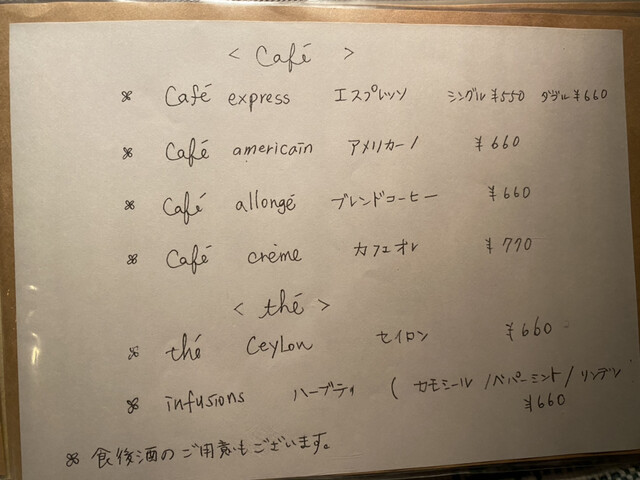 < Café >
⌘ Café express エスプレッソ シングル ¥550 ダブル ¥660
⌘ Café americain アメリカーノ ¥660
⌘ Café allongé ブレンドコーヒー ¥660
⌘ Café crème カフェオレ ¥770
< thé >
⌘ thé Ceylon セイロン ¥660
⌘ infusions ハーブティ ( カモミール / ペパーミント / リンデン
¥660
⌘ 食後酒のご用意もございます。